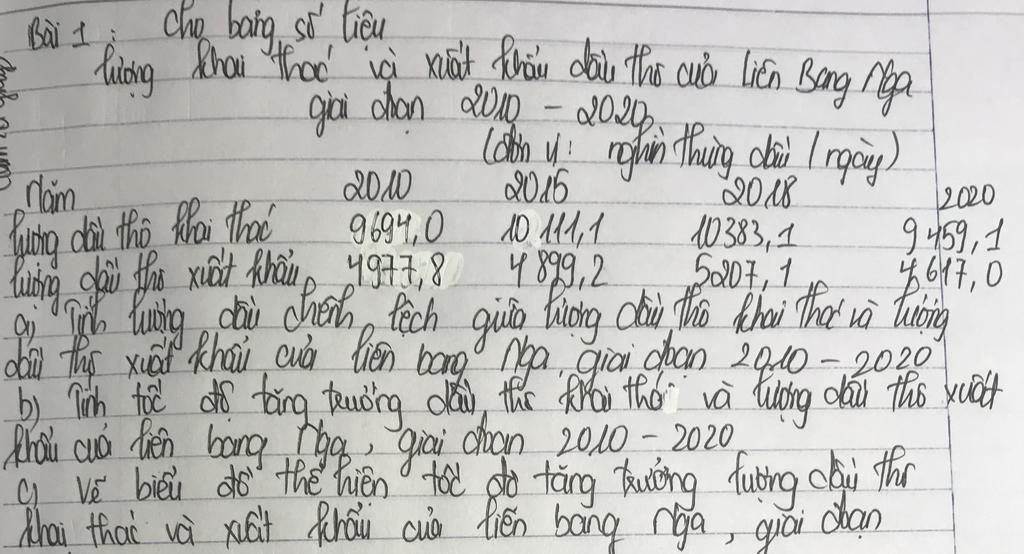 Bài 1 : Cho bảng số liệu
lượng khai thác và xuất khẩu dầu thô của Liên Bang Nga
giai đoạn 2010 - 2020
(đơn vị: nghìn thùng dầu / ngày)
Năm 2010 2015 2018 2020
lượng dầu thô khai thác 9694,0 10 111,1 10383,1 9 459,1
lượng dầu thô xuất khẩu 4977,8 4 899,2 5207,1 4 617,0
a) Tính lượng dầu chênh lệch giữa lượng dầu thô khai thác và lượng
dầu thô xuất khẩu của liên bang Nga, giai đoạn 2010 - 2020
b) Tính tốc độ tăng trưởng dầu thô khai thác và lượng dầu thô xuất
khẩu của liên bang Nga, giai đoạn 2010 - 2020
c) Vẽ biểu đồ thể hiện tốc độ tăng trưởng lượng dầu thô
khai thác và xuất khẩu của liên bang Nga, giai đoạn